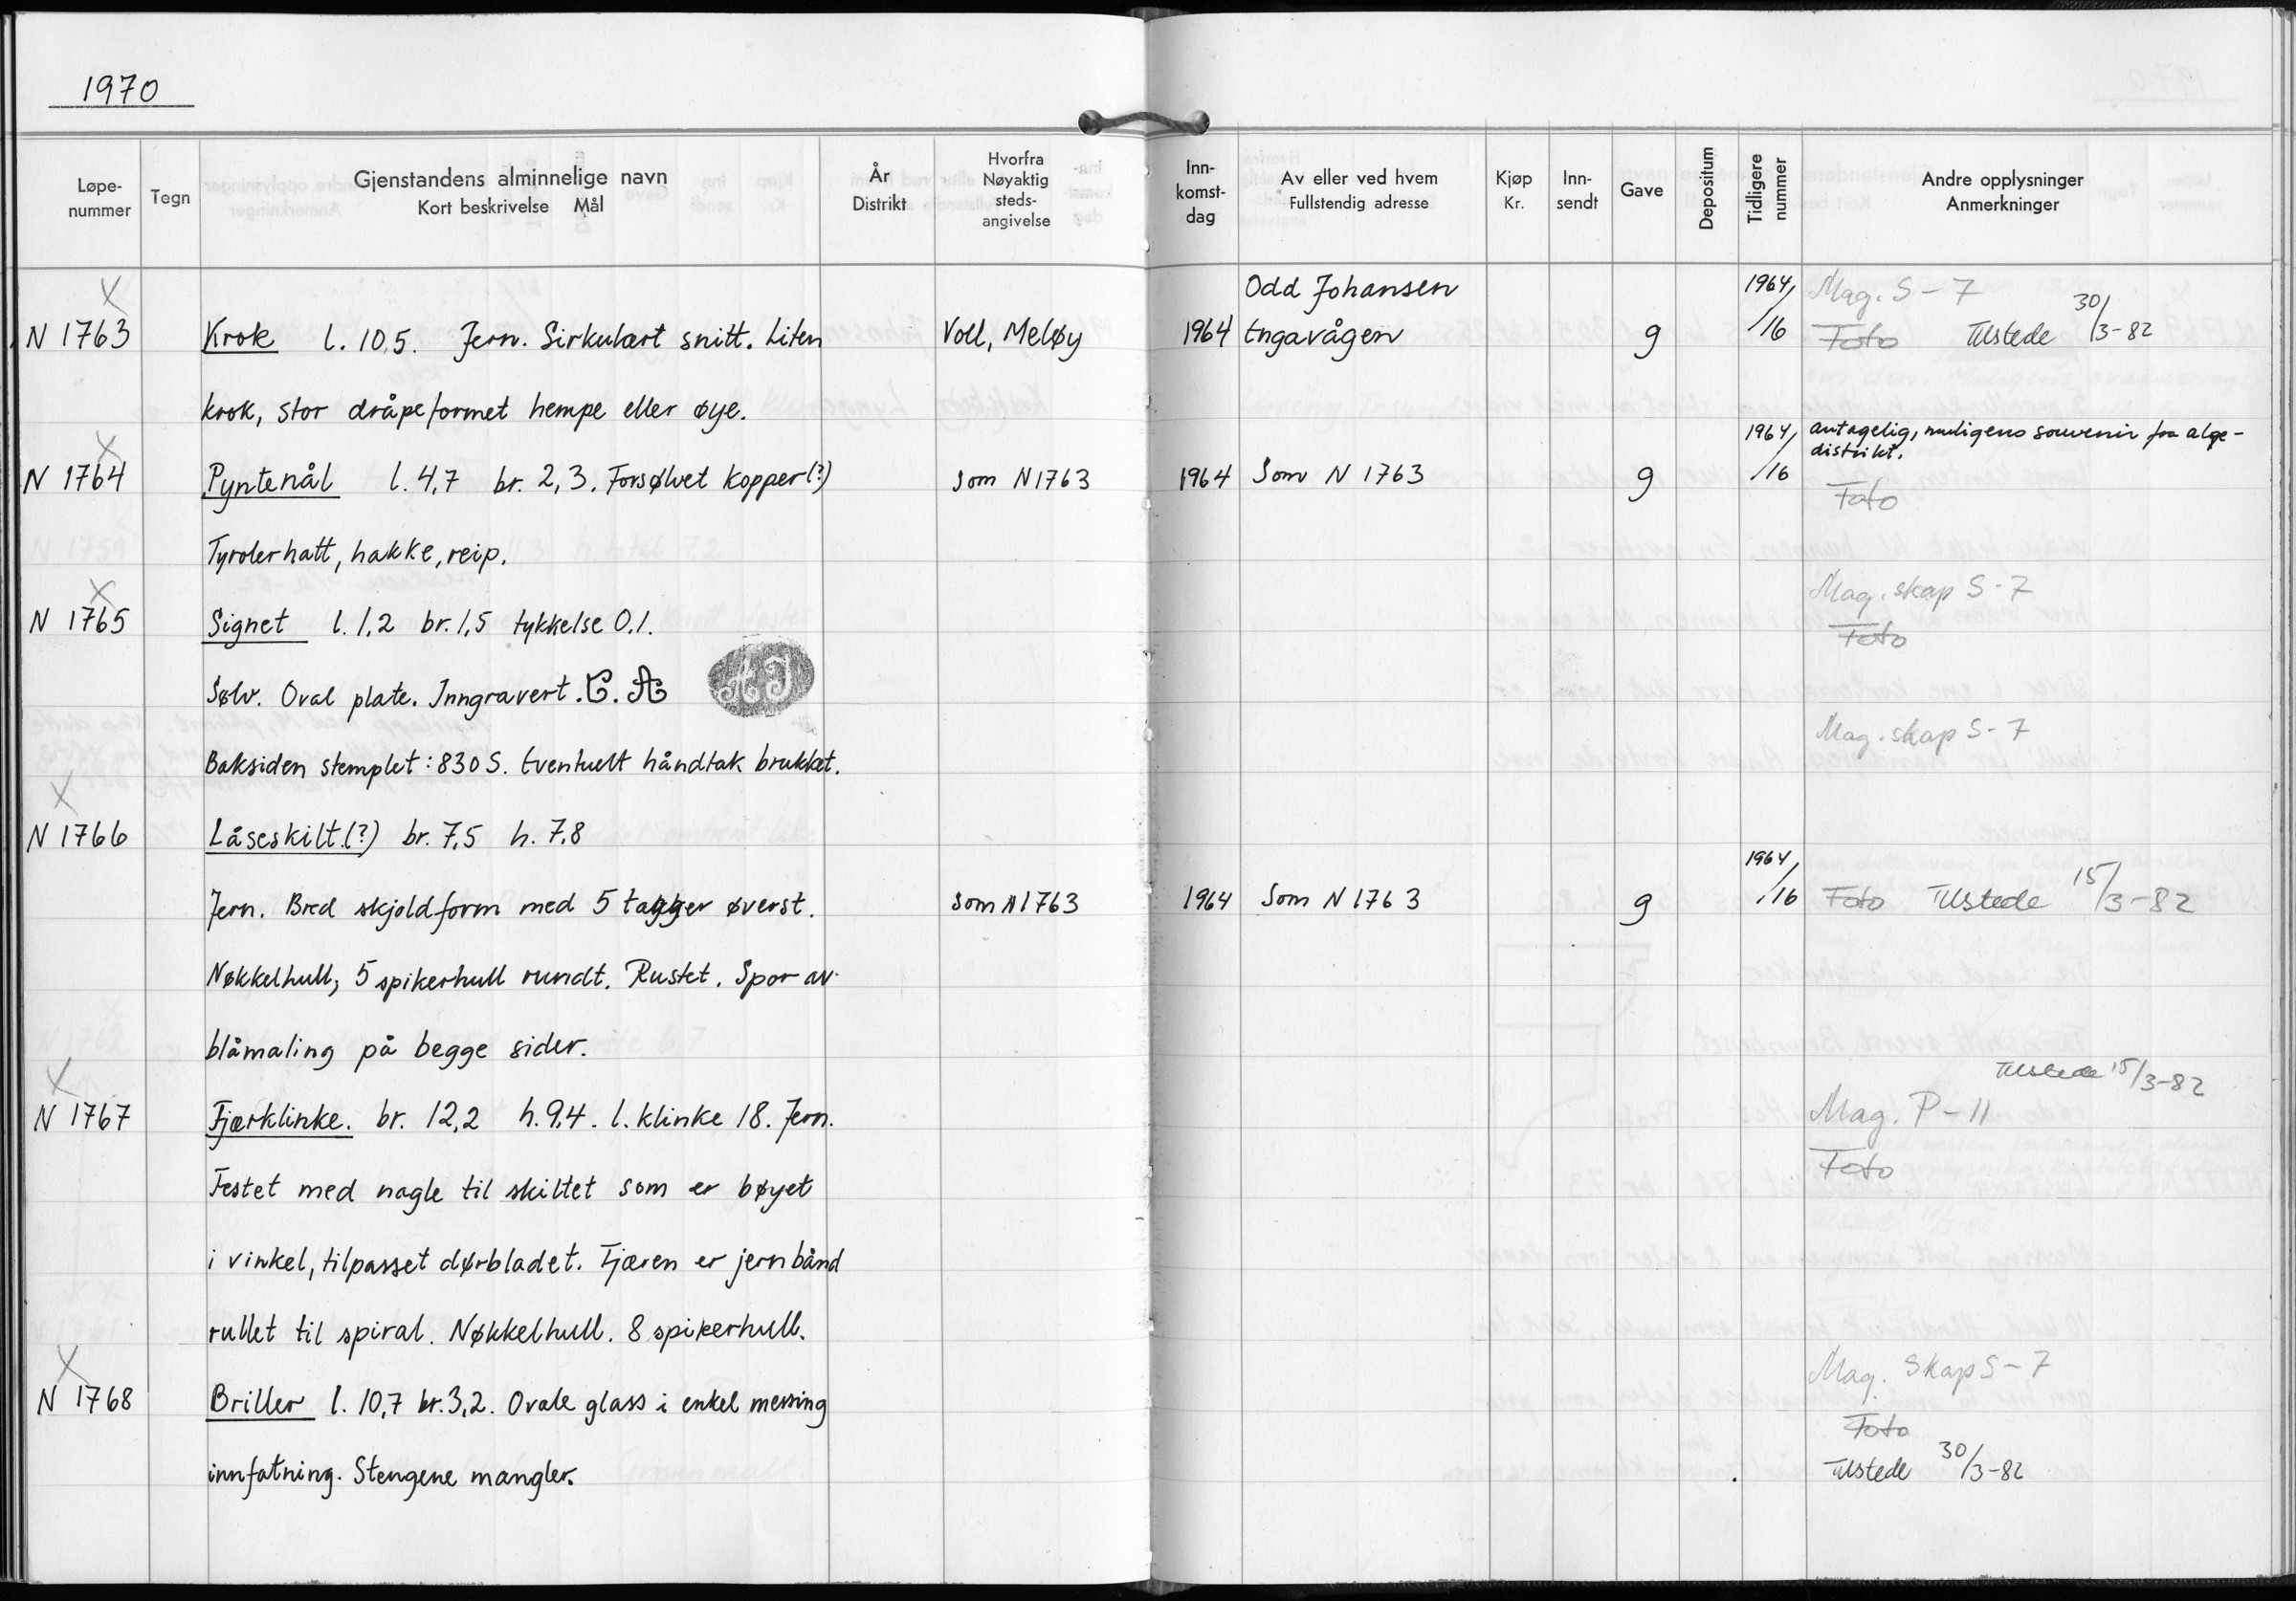 1970
Løpe-nummer Tegn Gjenstandens alminnelige navn Kort beskrivelse Mål År Distrikt Hvorfra Nøyaktig steds-angivelse Inn-komst-dag Av eller ved hvem Fullstendig adresse Kjøp Kr. Inn-sendt Gave Depositum Tidligere nummer Andre opplysninger Anmerkninger
X Odd Johansen 1964/ Mag. S-7
N 1763 Krok l. 10,5. Jern. Sirkulært snitt. Liten Voll, Meløy 1964 Engavågen g /16 Foto Tilstede 30/3-82
krok, stor dråpeformet hempe eller øye.
X 1964/ antagelig, muligens souvenir fra alpe-
distrikt.
N 1764 Pyntenål l. 4,7 br. 2,3. Forsølvet kopper(?) Som N1763 1964 Som N 1763 g /16 Foto
Tyrolerhatt, hakke, reip.
X Mag. skap S-7
N 1765 Signet l. 1,2 br. 1,5 tykkelse 0,1. Foto
Sølv. Oval plate. Inngravert. C. A AJ
Mag. skap S-7
Baksiden stemplet: 830 S. Eventuelt håndtak brukket.
X
N 1766 Låseskilt.(?) br. 7,5 h. 7,8
1964/
Jern. Bred skjoldform med 5 tagger øverst. Som N1763 1964 Som N 1763 g /16 Foto Tilstede 15/3-82
Nøkkelhull, 5 spikerhull rundt. Rustet. Spor av
blåmaling på begge sider.
X Tilstede 15/3-82
N 1767 Fjærklinke. br. 12,2 h. 9,4. l. klinke 18. Jern. Mag. P-11
Foto
Festet med nagle til skiltet som er bøyet
i vinkel, tilpasset dørbladet. Fjæren er jernbånd
rullet til spiral. Nøkkelhull. 8 spikerhull.
X Mag. Skap S-7
N 1768 Briller l. 10,7 br. 3,2. Ovale glass i enkel messing
Foto
innfatning. Stengene mangler. Tilstede 30/3-82